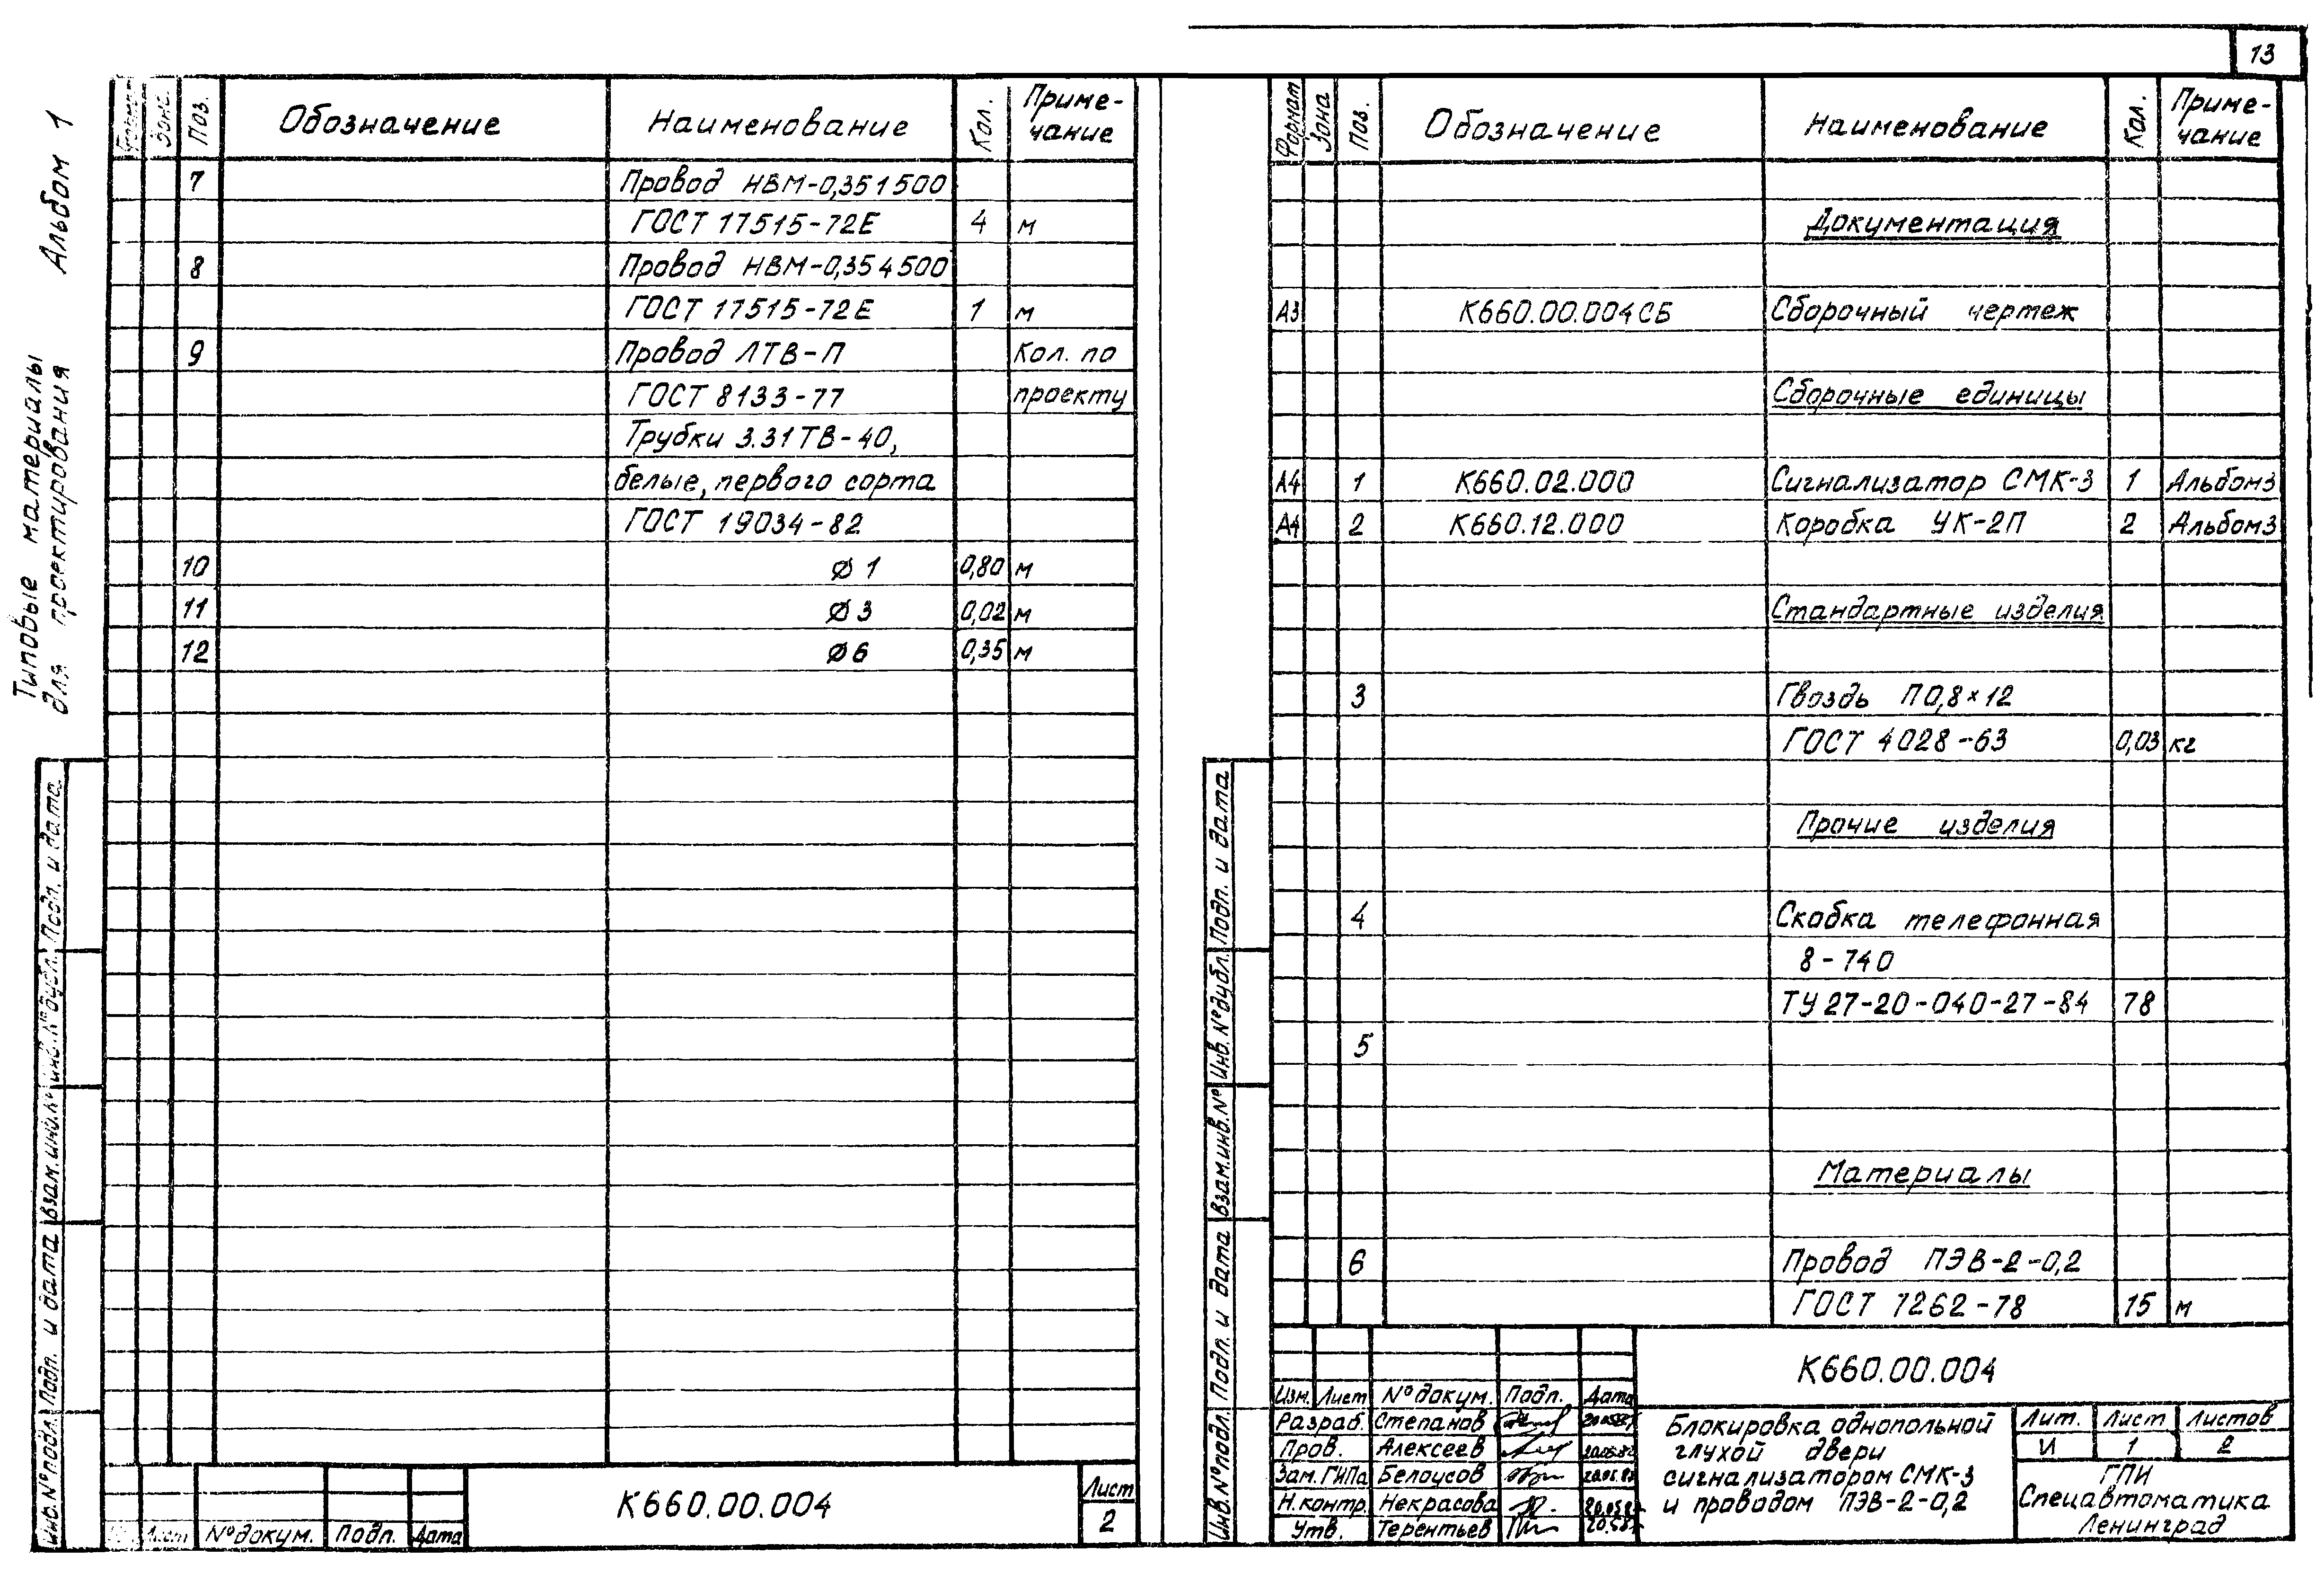 13
Типовые материалы
для проектирования
Альбом 1
Зона Поз. Обозначение Наименование Кол. Приме-
чание
7 Провод НВМ-0,35 1 500
ГОСТ 17515-72Е 4 м
8 Провод НВМ-0,35 4 500
ГОСТ 17515-72Е 1 м
9 Провод ЛТВ-П Кол. по
ГОСТ 8133-77 проекту
Трубки 3.31 ТВ-40,
белые, первого сорта
ГОСТ 19034-82
10 Ø1 0,80 м
11 Ø3 0,02 м
12 Ø6 0,35 м
Подп. и дата
Инв.№дубл.
Взам.инв.№
Подп. и дата
Инв.№подл.
Лист №докум. Подп. Дата
К660.00.004
Лист
2
Формат Зона Поз. Обозначение Наименование Кол. Приме-
чание
Документация
А3 К660.00.004СБ Сборочный чертеж
Сборочные единицы
А4 1 К660.02.000 Сигнализатор СМК-3 1 Альбом3
А4 2 К660.12.000 Коробка УК-2П 2 Альбом3
Стандартные изделия
3 Гвоздь П 0,8×12
ГОСТ 4028-63 0,03 кг
Прочие изделия
4 Скобка телефонная
8-740
ТУ 27-20-040-27-84 78
5
Материалы
6 Провод ПЭВ-2-0,2
ГОСТ 7262-78 15 м
Подп. и дата
Инв.№дубл.
Взам.инв.№
Подп. и дата
Инв.№подл.
К660.00.004
Изм. Лист №докум. Подп. Дата
Разраб. Степанов
Пров. Алексеев
Зам.ГИПа Белоусов
Н.контр. Некрасова
Утв. Терентьев
Блокировка однопольной
глухой двери
сигнализатором СМК-3
и проводом ПЭВ-2-0,2
Лит. Лист Листов
И 1 2
ГПИ
Спецавтоматика
Ленинград